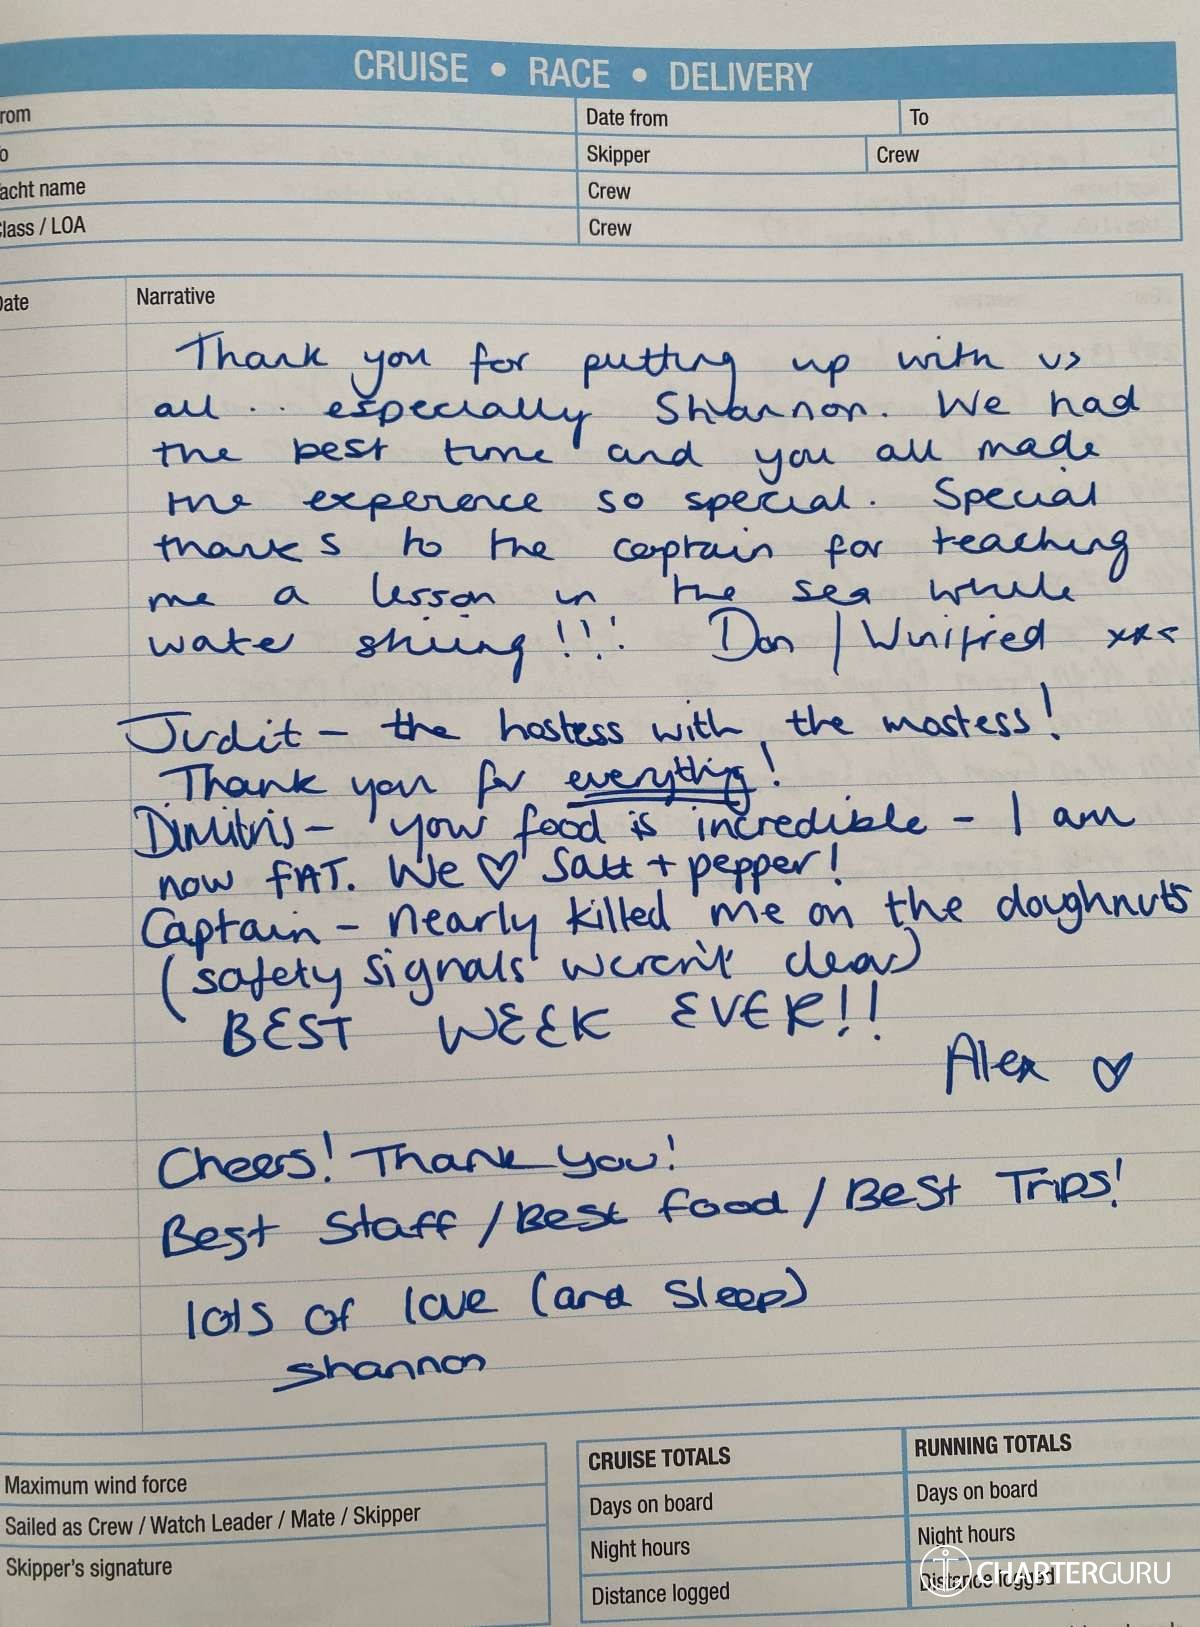 CRUISE • RACE • DELIVERY
rom
Date from
To
o
Skipper
Crew
acht name
Crew
lass / LOA
Crew
Date
Narrative
Thank you for putting up with us
all .. especially Shannon. We had
the best time and you all made
the experence so special. Special
thanks to the captain for teaching
me a lesson in the sea while
water skiing!!! Dan / Winifred xxx
Judit – the hostess with the mostess!
Thank you for everything!
Dimitris – your food is incredible – I am
now FAT. We ♡ Salt + pepper!
Captain – nearly killed me on the doughnuts
(safety signals weren't clear)
BEST WEEK EVER!!
Alex ♡
Cheers! Thank you!
Best Staff / Best food / Best Trips!
lots of love (and sleep)
shannon
Maximum wind force
Sailed as Crew / Watch Leader / Mate / Skipper
Skipper's signature
CRUISE TOTALS
Days on board
Night hours
Distance logged
RUNNING TOTALS
Days on board
Night hours
Distance logged
CHARTERGURU